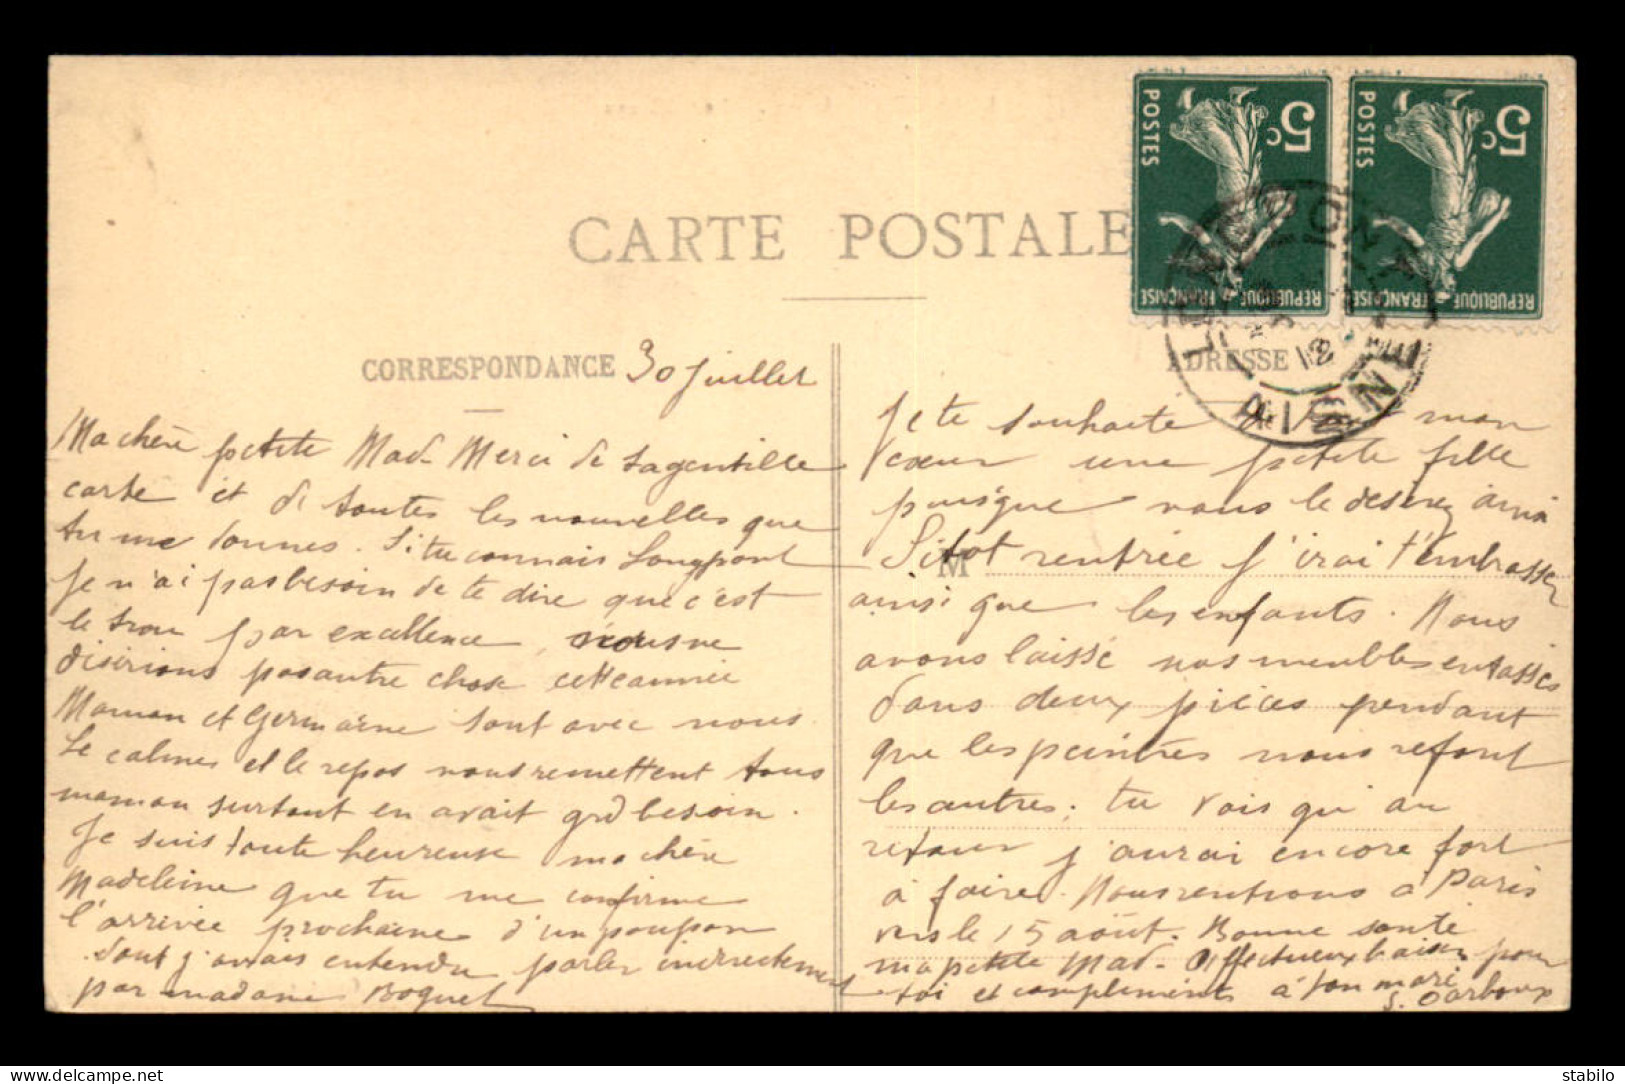 5c
POSTES
REPUBLIQUE FRANÇAISE
5c
POSTES
REPUBLIQUE FRANÇAISE
LONGPONT
AISNE
CARTE POSTALE
CORRESPONDANCE
ADRESSE
30 Juillet
Ma chère petite Mad. Merci de ta gentille
carte et de toutes les nouvelles que
tu me donnes. Si tu connais Longpont
Je n'ai pas besoin de te dire que c'est
le trou par excellence, nous ne
désirions pas autre chose cette année
Maman et Germaine sont avec nous.
Le calme et le repos nous remettent tous
maman surtout en avait grd besoin.
Je suis toute heureuse ma chère
Madeleine que tu me confirme
l'arrivée prochaine d'un poupon
dont j'avais entendu parler indirectement
par madame Boquet
Je te souhaite de tout mon
cœur une petite fille
puisque vous le désirez ainsi
M
Sitot rentrée j'irai t'embrasser
ainsi que les enfants. Nous
avons laissé nos meubles entassés
dans deux pièces pendant
que les peintres nous refont
les autres; tu vois qu'au
retour j'aurai encore fort
à faire. Nous rentrons à Paris
vers le 15 août. Bonne santé
ma petite Mad. Affectueux baisers pour
toi et compliments à ton mari
S. Darboux
stabilo